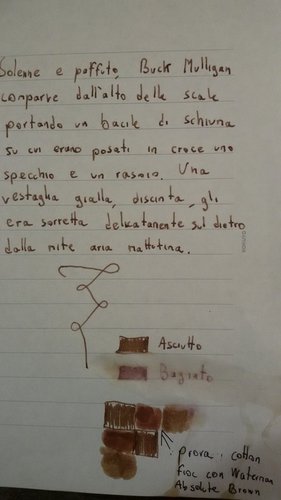 Solenne e paffuto, Buck Mulligan
comparve dall'alto delle scale
portando un bacile di schiuma
su cui erano posati in croce uno
specchio e un rasoio. Una
vestaglia gialla, discinta, gli
era sorretta delicatamente sul dietro
dalla mite aria mattutina.
Asciutto
Bagnato
prova: cotton
fioc con Waterman
Absolute Brown